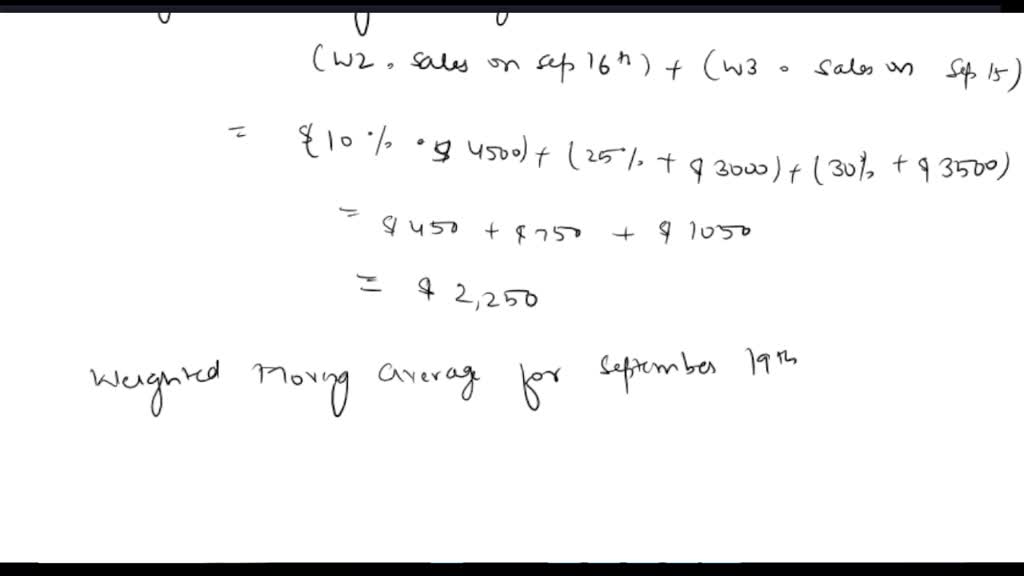 (W2 . sales on sep 16th) + (W3 . sales on sep 15)
= {10 % . $ 4500) + (25% + $ 3000) + (30% + $ 3500)
= $ 450 + $ 750 + $ 1050
= $ 2,250
Weighted Moving average for September 19th